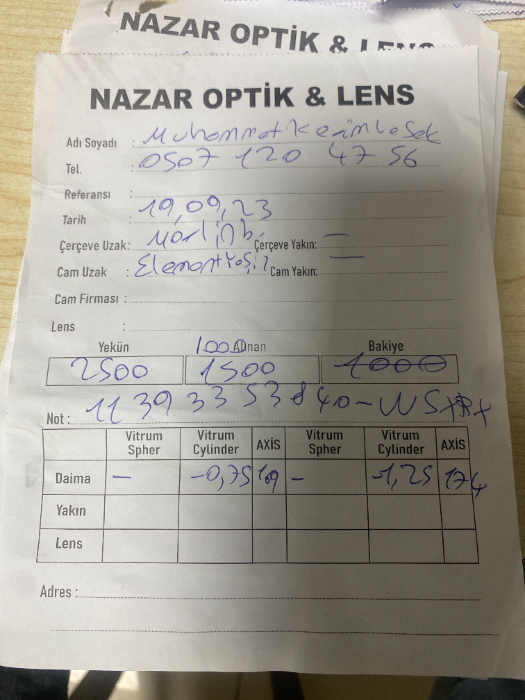 NAZAR OPTİK & LENS
NAZAR OPTİK & LENS
Adı Soyadı : Muhammet Kerim
Tel. : 0507 120 47 56
Referansı :
Tarih : 19,09,23
Çerçeve Uzak: Çerçeve Yakın: —
Cam Uzak : Cam Yakın: —
Cam Firması :
Lens :
Yekün 100 Alınan Bakiye
2500 1500 1000
Not : 11 39 33 53 840-
Vitrum Spher Vitrum Cylinder AXİS Vitrum Spher Vitrum Cylinder AXİS
Daima — -0,75 169 — -1,25 174
Yakın
Lens
Adres :